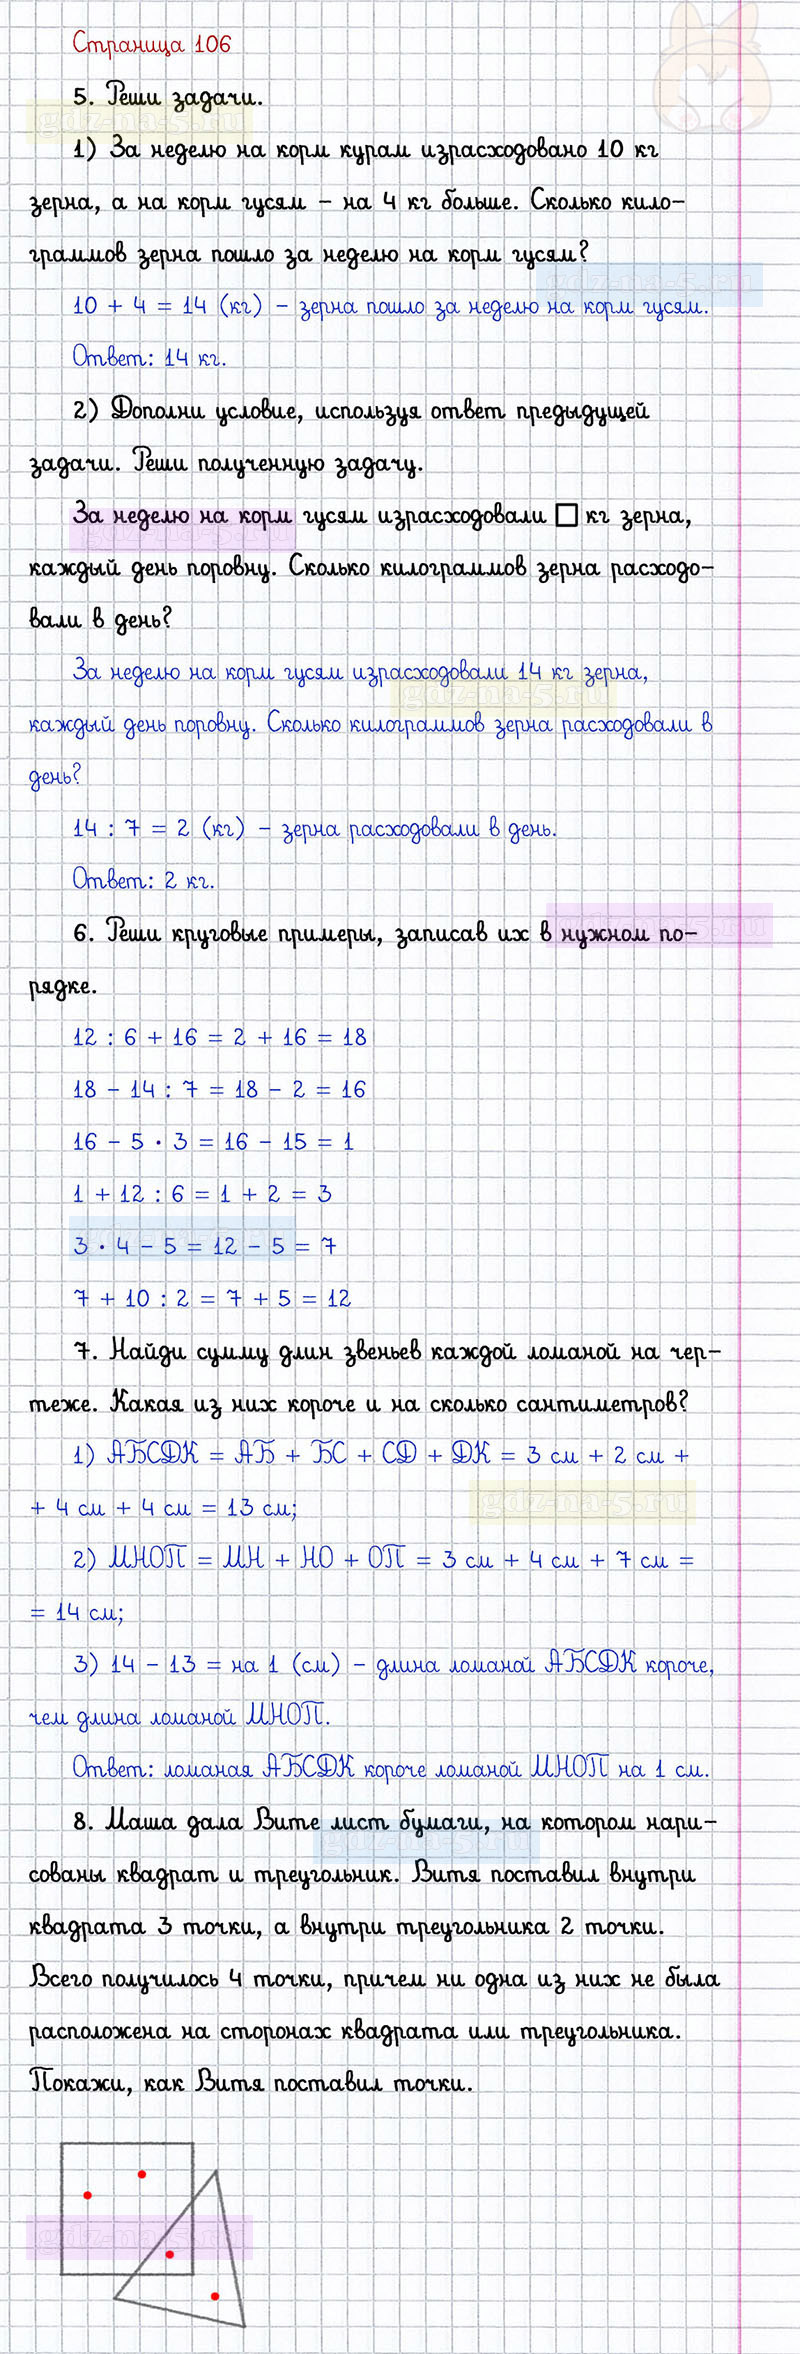 Страница 106
5. Реши задачи.
gdz-na-5.ru
1) За неделю на корм курам израсходовано 10 кг
зерна, а на корм гусям – на 4 кг больше. Сколько кило-
граммов зерна пошло за неделю на корм гусям?
gdz-na-5.ru
10 + 4 = 14 (кг) – зерна пошло за неделю на корм гусям.
Ответ: 14 кг.
2) Дополни условие, используя ответ предыдущей
задачи. Реши полученную задачу.
За неделю на корм гусям израсходовали □ кг зерна,
gdz-na-5.ru
каждый день поровну. Сколько килограммов зерна расходо-
вали в день?
За неделю на корм гусям израсходовали 14 кг зерна,
gdz-na-5.ru
каждый день поровну. Сколько килограммов зерна расходовали в
день?
14 : 7 = 2 (кг) – зерна расходовали в день.
Ответ: 2 кг.
gdz-na-5.ru
6. Реши круговые примеры, записав их в нужном по-
рядке.
12 : 6 + 16 = 2 + 16 = 18
18 – 14 : 7 = 18 – 2 = 16
16 – 5 · 3 = 16 – 15 = 1
1 + 12 : 6 = 1 + 2 = 3
gdz-na-5.ru
3 · 4 – 5 = 12 – 5 = 7
7 + 10 : 2 = 7 + 5 = 12
7. Найди сумму длин звеньев каждой ломаной на чер-
теже. Какая из них короче и на сколько сантиметров?
1) АБСДК = АБ + БС + СД + ДК = 3 см + 2 см +
gdz-na-5.ru
+ 4 см + 4 см = 13 см;
2) МНОП = МН + НО + ОП = 3 см + 4 см + 7 см =
= 14 см;
3) 14 – 13 = на 1 (см) – длина ломаной АБСДК короче,
чем длина ломаной МНОП.
Ответ: ломаная АБСДК короче ломаной МНОП на 1 см.
8. Маша дала Вите лист бумаги, на котором нари-
gdz-na-5.ru
сованы квадрат и треугольник. Витя поставил внутри
квадрата 3 точки, а внутри треугольника 2 точки.
Всего получилось 4 точки, причем ни одна из них не была
расположена на сторонах квадрата или треугольника.
Покажи, как Витя поставил точки.
gdz-na-5.ru